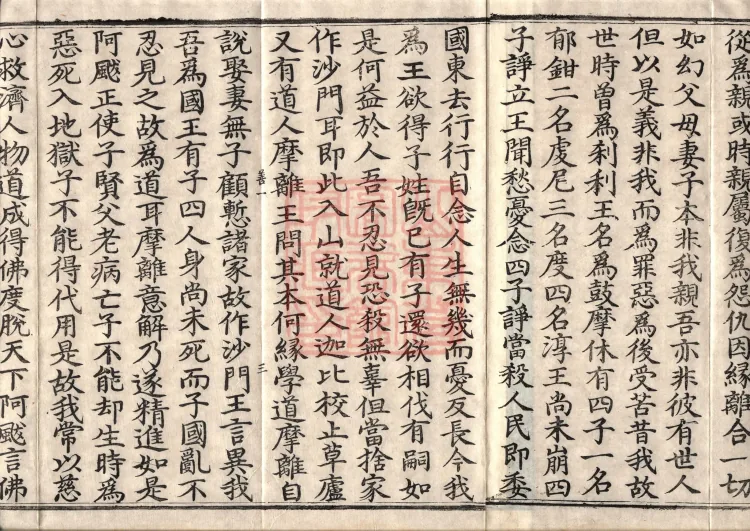 從爲親或時親屬復爲怨仇因緣離合一切
如幻父母妻子本非我親吾亦非彼有世人
但以是義非我而爲罪惡爲後受苦昔我故
世時曾爲刹利王名爲鼓摩休有四子一名
郁鉗二名虔尼三名度四名淳王尚未崩四
子諍立王聞愁憂念四子諍當殺人民即委
國東去行行自念人生無幾而憂反長今我
爲王欲得子姓旣已有子還欲相伐有嗣如
是何益於人吾不忍見恐殺無辜但當捨家
作沙門耳即此入山就道人迦比校止草廬
又有道人摩離王問其本何緣學道摩離自
善一
三
說娶妻無子顧慙諸家故作沙門王言異我
吾爲國王有子四人身尚未死而子國亂不
忍見之故爲道耳摩離意解乃遂精進如是
阿颰正使子賢父老病亡子不能却生時爲
惡死入地獄子不能得代用是故我常以慈
心救濟人物道成得佛度脫天下阿颰言佛